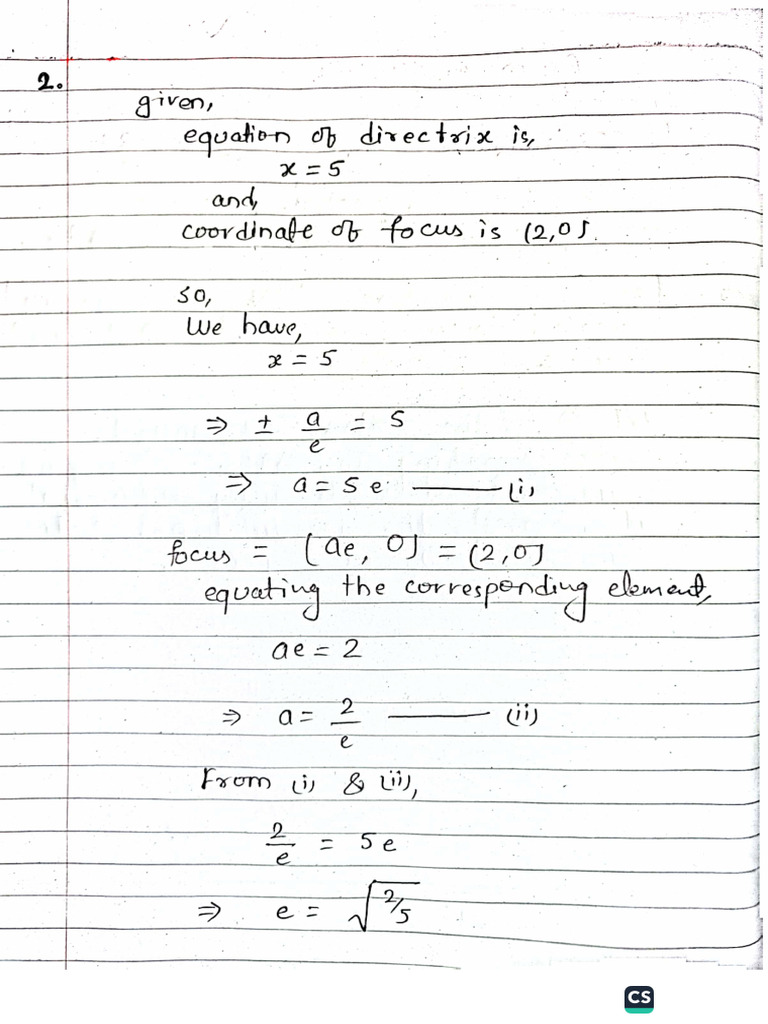 2.
given,
equation of directrix is,
x = 5
and,
coordinate of focus is (2,0).
so,
We have,
x = 5
⇒ ± a/e = 5
⇒ a = 5e ——— (i)
focus = (ae, 0) = (2,0)
equating the corresponding element,
ae = 2
⇒ a = 2/e ——— (ii)
From (i) & (ii),
2/e = 5e
⇒ e = √2/5
CS